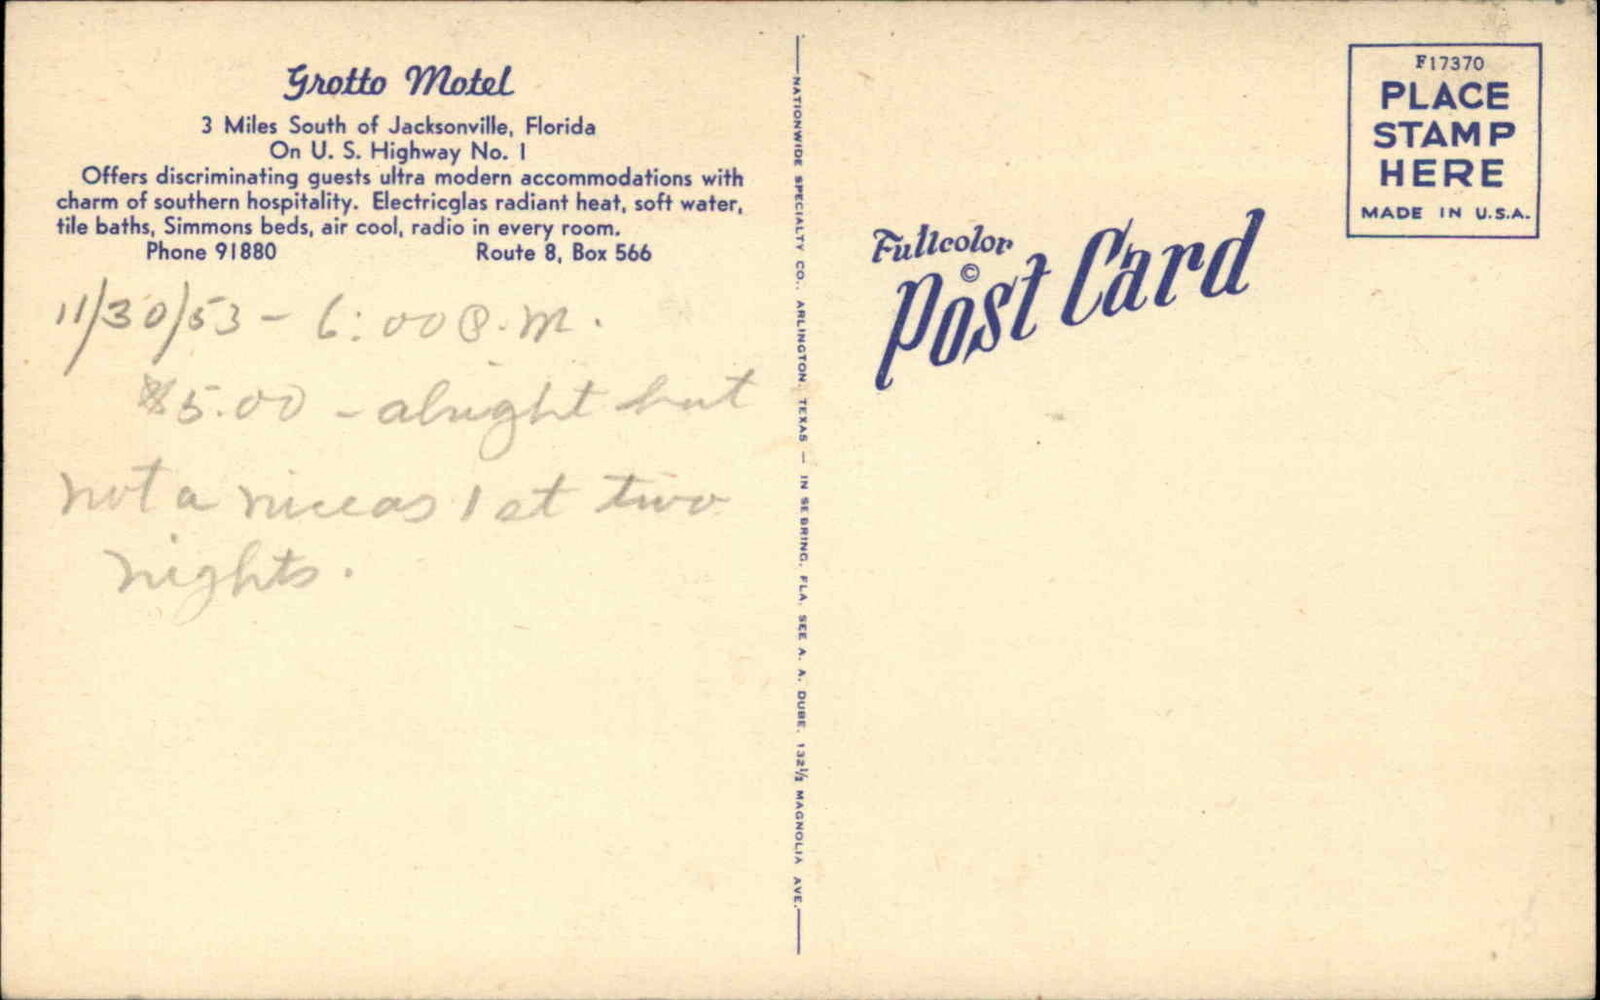 Grotto Motel
3 Miles South of Jacksonville, Florida
On U. S. Highway No. 1
Offers discriminating guests ultra modern accommodations with
charm of southern hospitality. Electricglas radiant heat, soft water,
tile baths, Simmons beds, air cool, radio in every room.
Phone 91880 Route 8, Box 566
11/30/53 - 6:00 P.M.
$5.00 - alright but
not a nice as 1 st two
nights.
NATIONWIDE SPECIALTY CO., ARLINGTON, TEXAS — IN SEBRING, FLA. SEE A. A. DUBE, 132½ MAGNOLIA AVE.
Fullcolor
Post Card
©
F17370
PLACE
STAMP
HERE
MADE IN U.S.A.